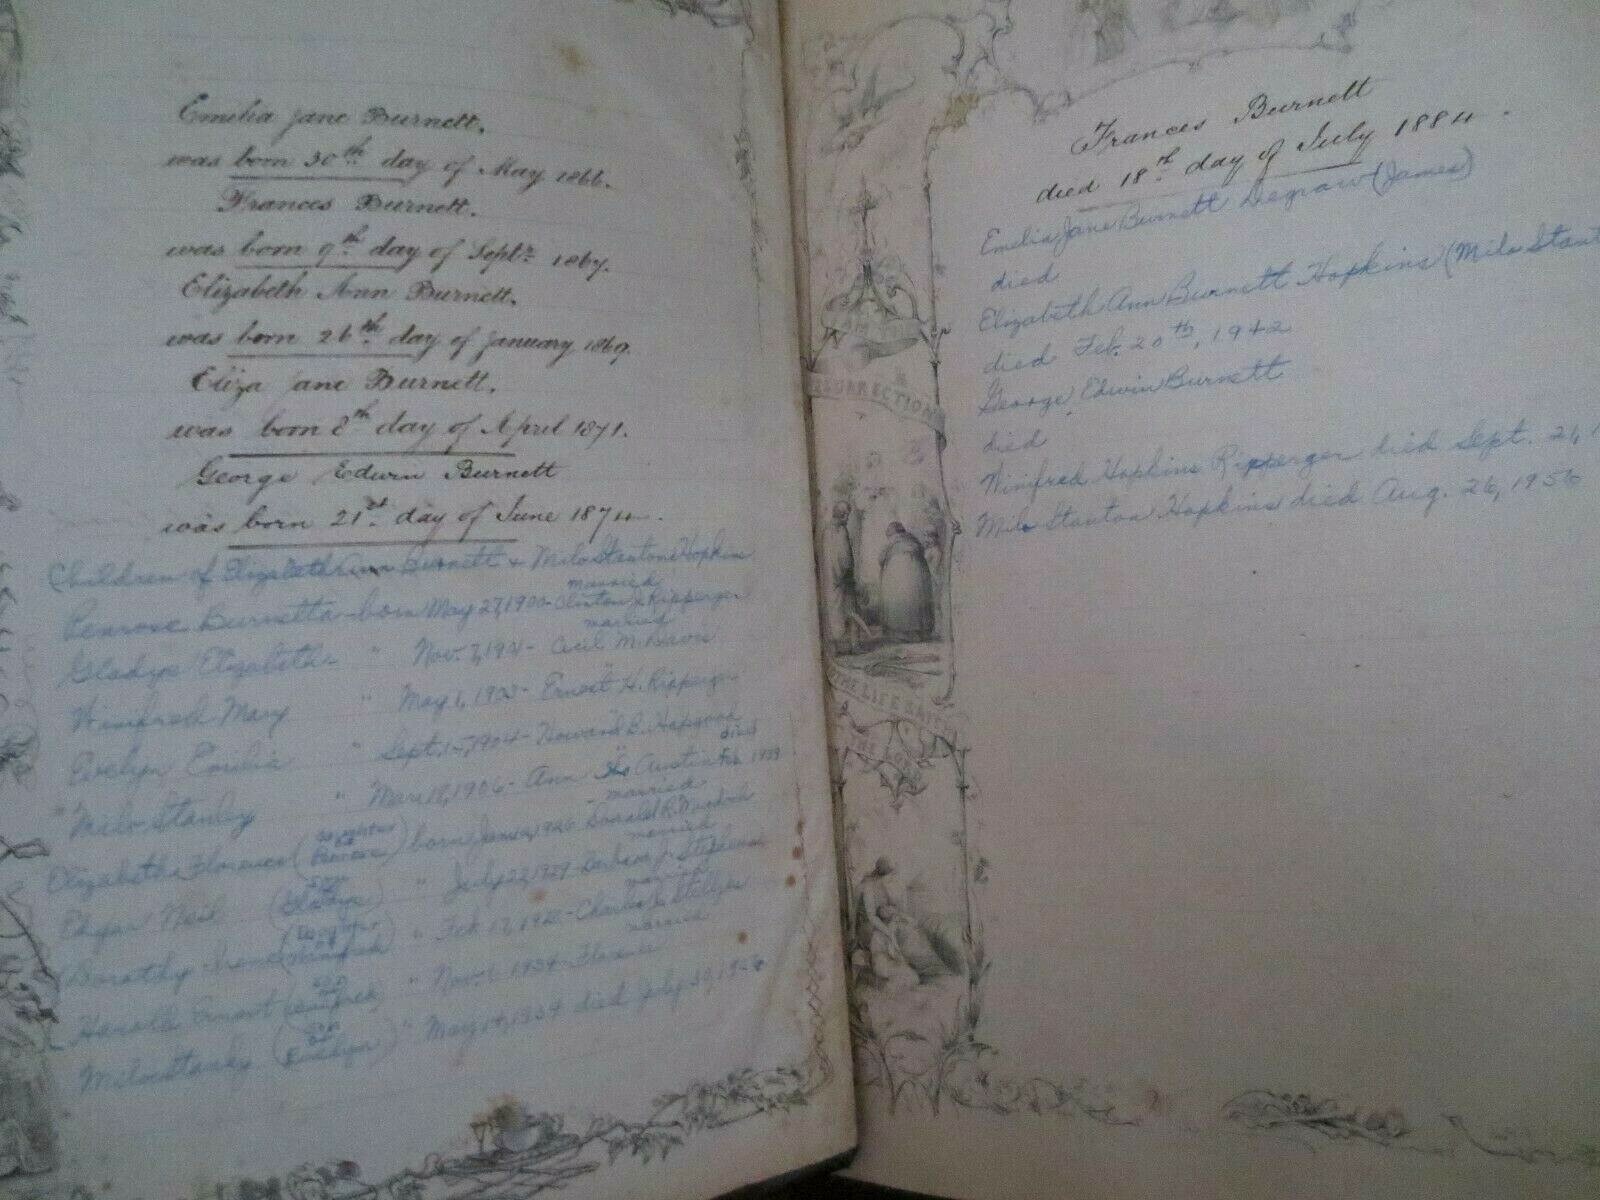 Emelia Jane Burnett.
was born 30th day of May 1866.
Frances Burnett.
was born 9th day of Septr 1867.
Elizabeth Ann Burnett.
was born 26th day of January 1869.
Eliza Jane Burnett.
was born 8th day of April 1871.
George Edwin Burnett
was born 21st day of June 1874.
Children of Elizabeth Ann Burnett & Milo Stanton Hopkins
married
Penrose Burnetta - born May 27, 1900 - Clinton J. Ripperger
married
Gladys Elizabeth - " Nov. 7, 1901 - Cecil M.
Winifred Mary " May 1, 1903 - Ernest H. Ripperger
Evelyn Emilia " Sept. 1904 - Howard B. Hapgood
died
Milo Stanley " Mar. 18, 1906 - Ann Austin Feb. 1939
married
Elizabeth Florence (daughter of Penrose) born 1926 - Donald R.
married
Edgar Neil (son Gladys) " July 22, 1927 - J. Stephens
married
Dorothy (daughter of Winifred) " Feb. 17, - Charles
married
Harold Ernest (son Winifred) " Nov. 1934 - Florence
Milo Stanley (son of Evelyn) " May 14, 1934 died July 30, 1926
Frances Burnett
died 18th day of July 1884.
Emelia Jane Burnett Degraw (James)
died
Elizabeth Ann Burnett Hopkins (Milo Stant
died Feb. 20th, 1942
George Edwin Burnett
died
Winifred Hopkins Ripperger died Sept. 21, 1
Milo Stanton Hopkins died Aug. 26, 1956
RESURRECTION
THE LIFE SAITH
THE LORD